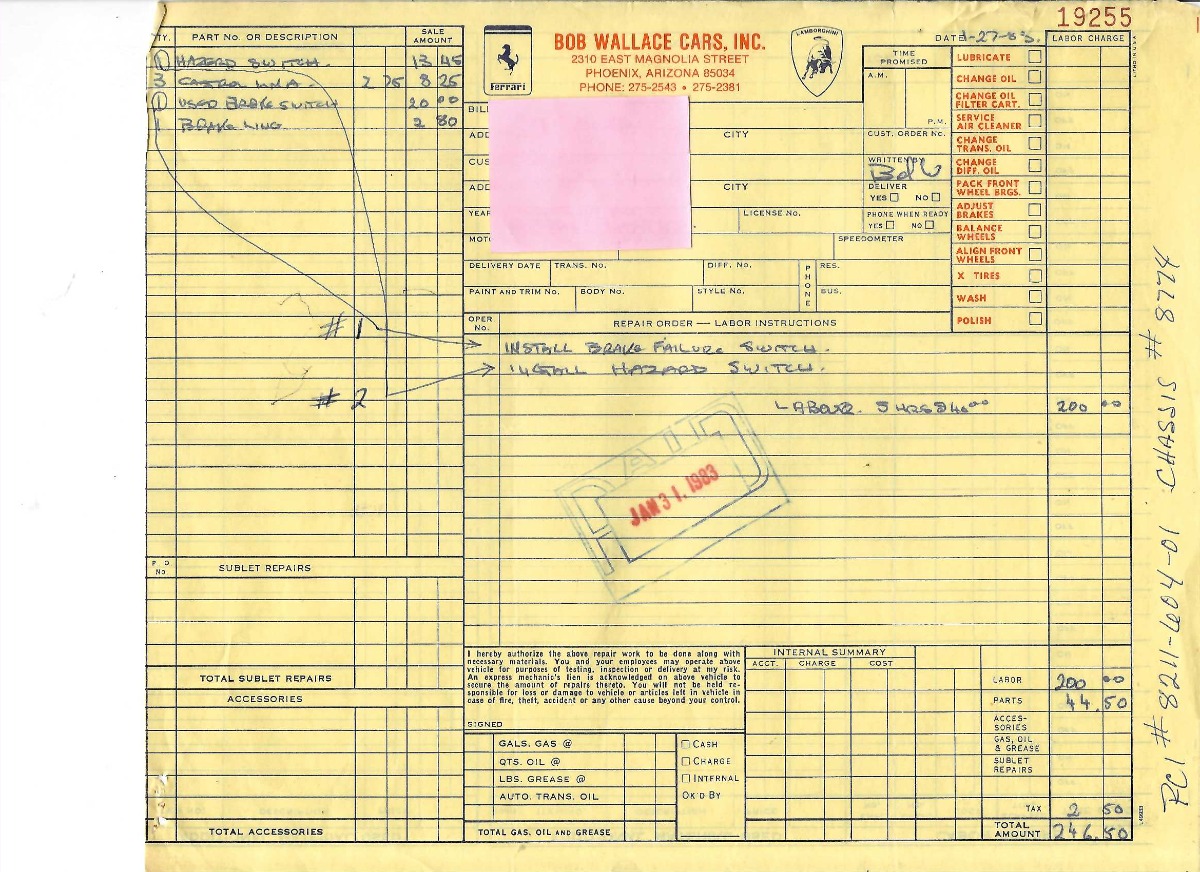 19255
TY. PART No. OR DESCRIPTION SALE AMOUNT
1 HAZARD SWITCH. 13 45
3 CASTROL LMA 2 75 8 25
1 USED BRAKE SWITCH 20 00
1 BRAKE 2 80
# 1
# 2
SUBLET REPAIRS
TOTAL SUBLET REPAIRS
ACCESSORIES
TOTAL ACCESSORIES
Ferrari
BOB WALLACE CARS, INC.
2310 EAST MAGNOLIA STREET
PHOENIX, ARIZONA 85034
PHONE: 275-2543 • 275-2381
LAMBORGHINI
DATE 1-27-83.
BIL
ADD CITY
CUS
ADD CITY
YEAR LICENSE No.
MOTO SPEEDOMETER
DELIVERY DATE TRANS. No. DIFF. No. PHONE RES.
PAINT AND TRIM No. BODY No. STYLE No. BUS.
TIME PROMISED
A.M.
P.M.
CUST. ORDER No.
WRITTEN BY
Bob W
DELIVER
YES NO
PHONE WHEN READY
YES NO
LABOR CHARGE
LUBRICATE
CHANGE OIL
CHANGE OIL FILTER CART.
SERVICE AIR CLEANER
CHANGE TRANS. OIL
CHANGE DIFF. OIL
PACK FRONT WHEEL BRGS.
ADJUST BRAKES
BALANCE WHEELS
ALIGN FRONT WHEELS
X TIRES
WASH
POLISH
OPER No. REPAIR ORDER — LABOR INSTRUCTIONS
INSTALL BRAKE FAILURE SWITCH.
INSTALL HAZARD SWITCH.
LABOUR. 5 HRS @ 40 00 200 00
PAID
JAN 31. 1983
I hereby authorize the above repair work to be done along with
necessary materials. You and your employees may operate above
vehicle for purposes of testing, inspection or delivery at my risk.
An express mechanic's lien is acknowledged on above vehicle to
secure the amount of repairs thereto. You will not be held re-
sponsible for loss or damage to vehicle or articles left in vehicle in
case of fire, theft, accident or any other cause beyond your control.
SIGNED
GALS. GAS @
QTS. OIL @
LBS. GREASE @
AUTO. TRANS. OIL
TOTAL GAS, OIL AND GREASE
CASH
CHARGE
INTERNAL
OK'D BY
INTERNAL SUMMARY
ACCT. CHARGE COST
LABOR 200 00
PARTS 44.50
ACCES-
SORIES
GAS, OIL
& GREASE
SUBLET
REPAIRS
TAX 2 50
TOTAL AMOUNT 246.50
PCI # 8211-1004-01 CHASSIS # 8274